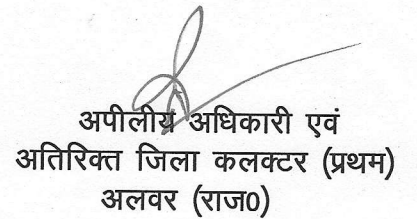 अपीलीय अधिकारी एवं
अतिरिक्त जिला कलक्टर (प्रथम)
अलवर (राज0)